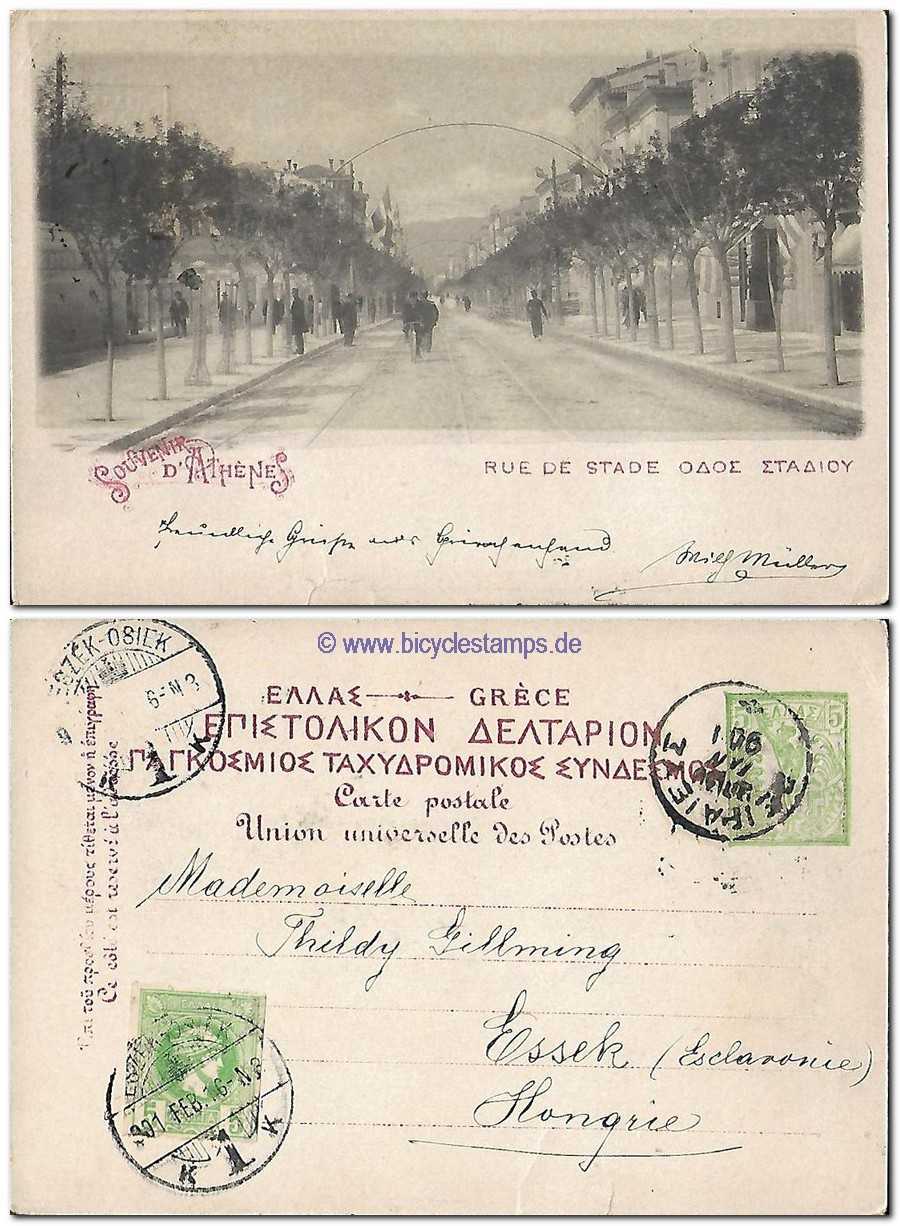 SOUVENIR
D'ATHÈNES
RUE DE STADE ΟΔΟΣ ΣΤΑΔΙΟΥ
Freundliche Grüße aus Griechenland
Müller
© www.bicyclestamps.de
ESZÉK-OSIEK
6-N 3
ΕΛΛΑΣ — GRÈCE
ΕΠΙΣΤΟΛΙΚΟΝ ΔΕΛΤΑΡΙΟΝ
ΠΑΓΚΟΣΜΙΟΣ ΤΑΧΥΔΡΟΜΙΚΟΣ ΣΥΝΔΕΣΜΟΣ
Carte postale
Union universelle des Postes
5 ΕΛΛΑΣ 5
ΠΕΙΡΑΙΕΥΣ
901
Ἐπὶ τοῦ προσθίου μέρους τίθεται μόνον ἡ ἐπιγραφή
Ce côté est réservé à l'adresse
Mademoiselle
Thildy Gillming
Essek (Esclavonie)
Hongrie
901 FEB. 6-N 3
5 5